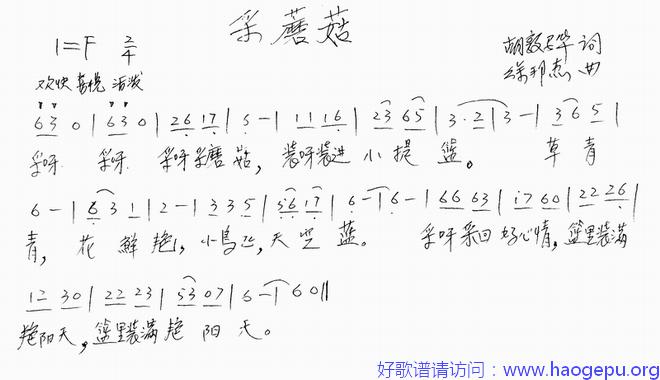 采蘑菇
1=F 2/4
胡敦骅 词
徐邦杰 曲
欢快 喜悦 活泼
63 0 | 63 0 | 26 17 | 5 - | 11 16 | 23 65 | 3·2 | 3 - | 36 5 |
采呀 采呀 采呀采蘑菇，装呀装进小提篮。 草青
6 - | 63 1 | 2 - | 33 5 | 56 17 | 6 - | 6 - | 66 63 | 17 60 | 22 26 |
青，花鲜艳，小鸟飞，天空蓝。 采呀采回好心情，篮里装满
12 30 | 22 23 | 53 07 | 6 - | 6 0 ‖
艳阳天，篮里装满艳阳天。
好歌谱请访问：www.haogepu.org